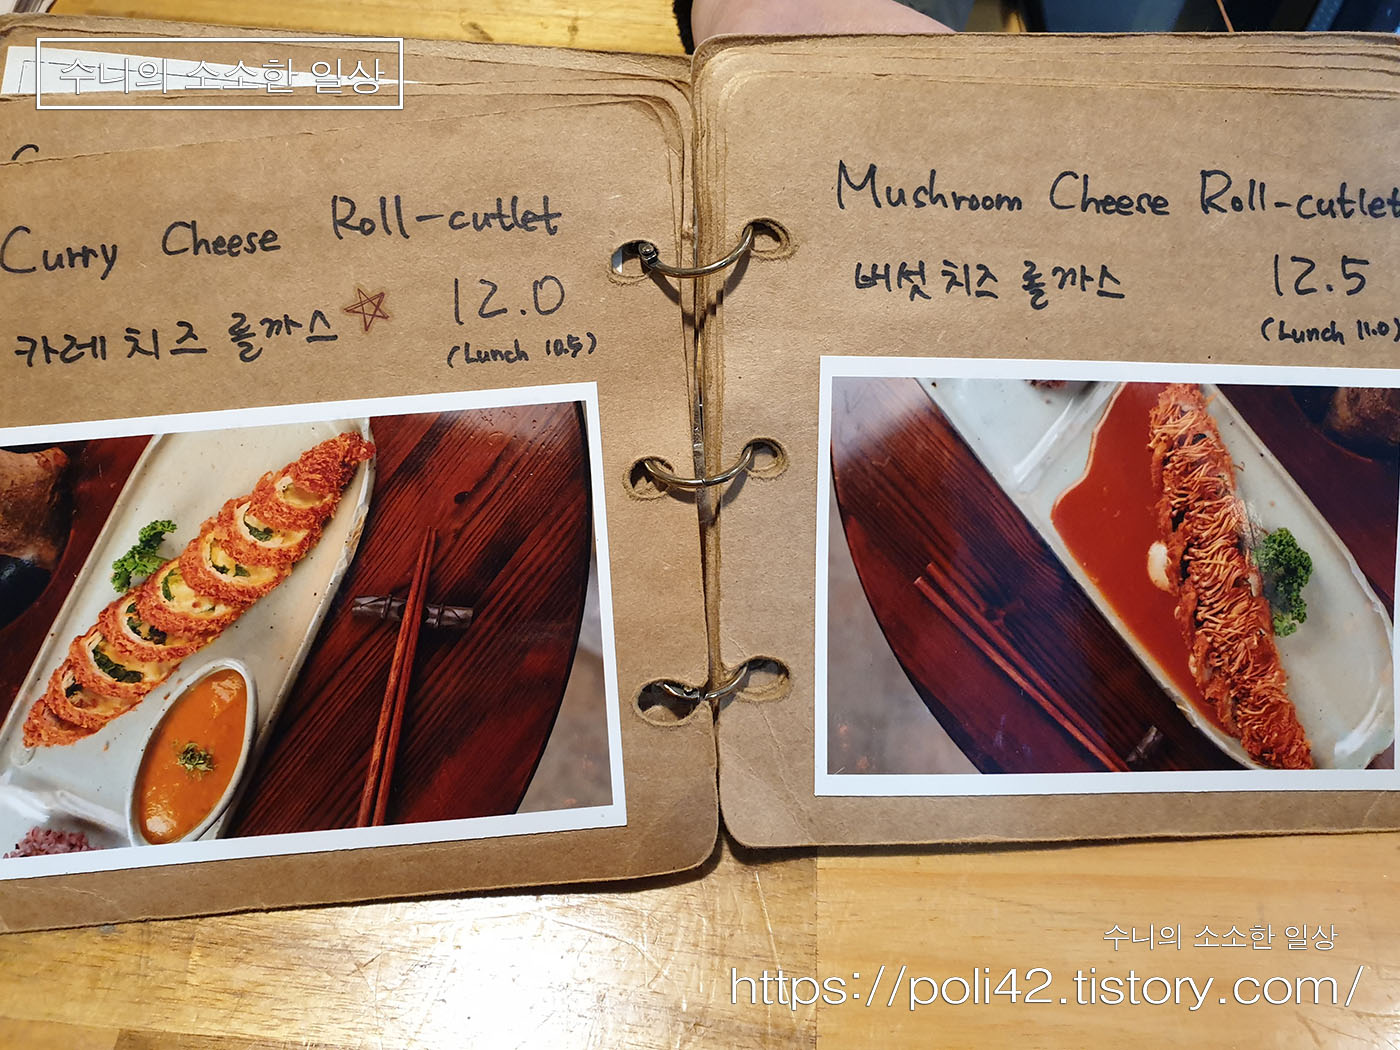 수니의 소소한 일상
Curry Cheese Roll-cutlet
카레 치즈 롤까스 12.0
(Lunch 10.5)
Mushroom Cheese Roll-cutlet
버섯 치즈 롤까스 12.5
(Lunch 11.0)
수니의 소소한 일상
https://poli42.tistory.com/